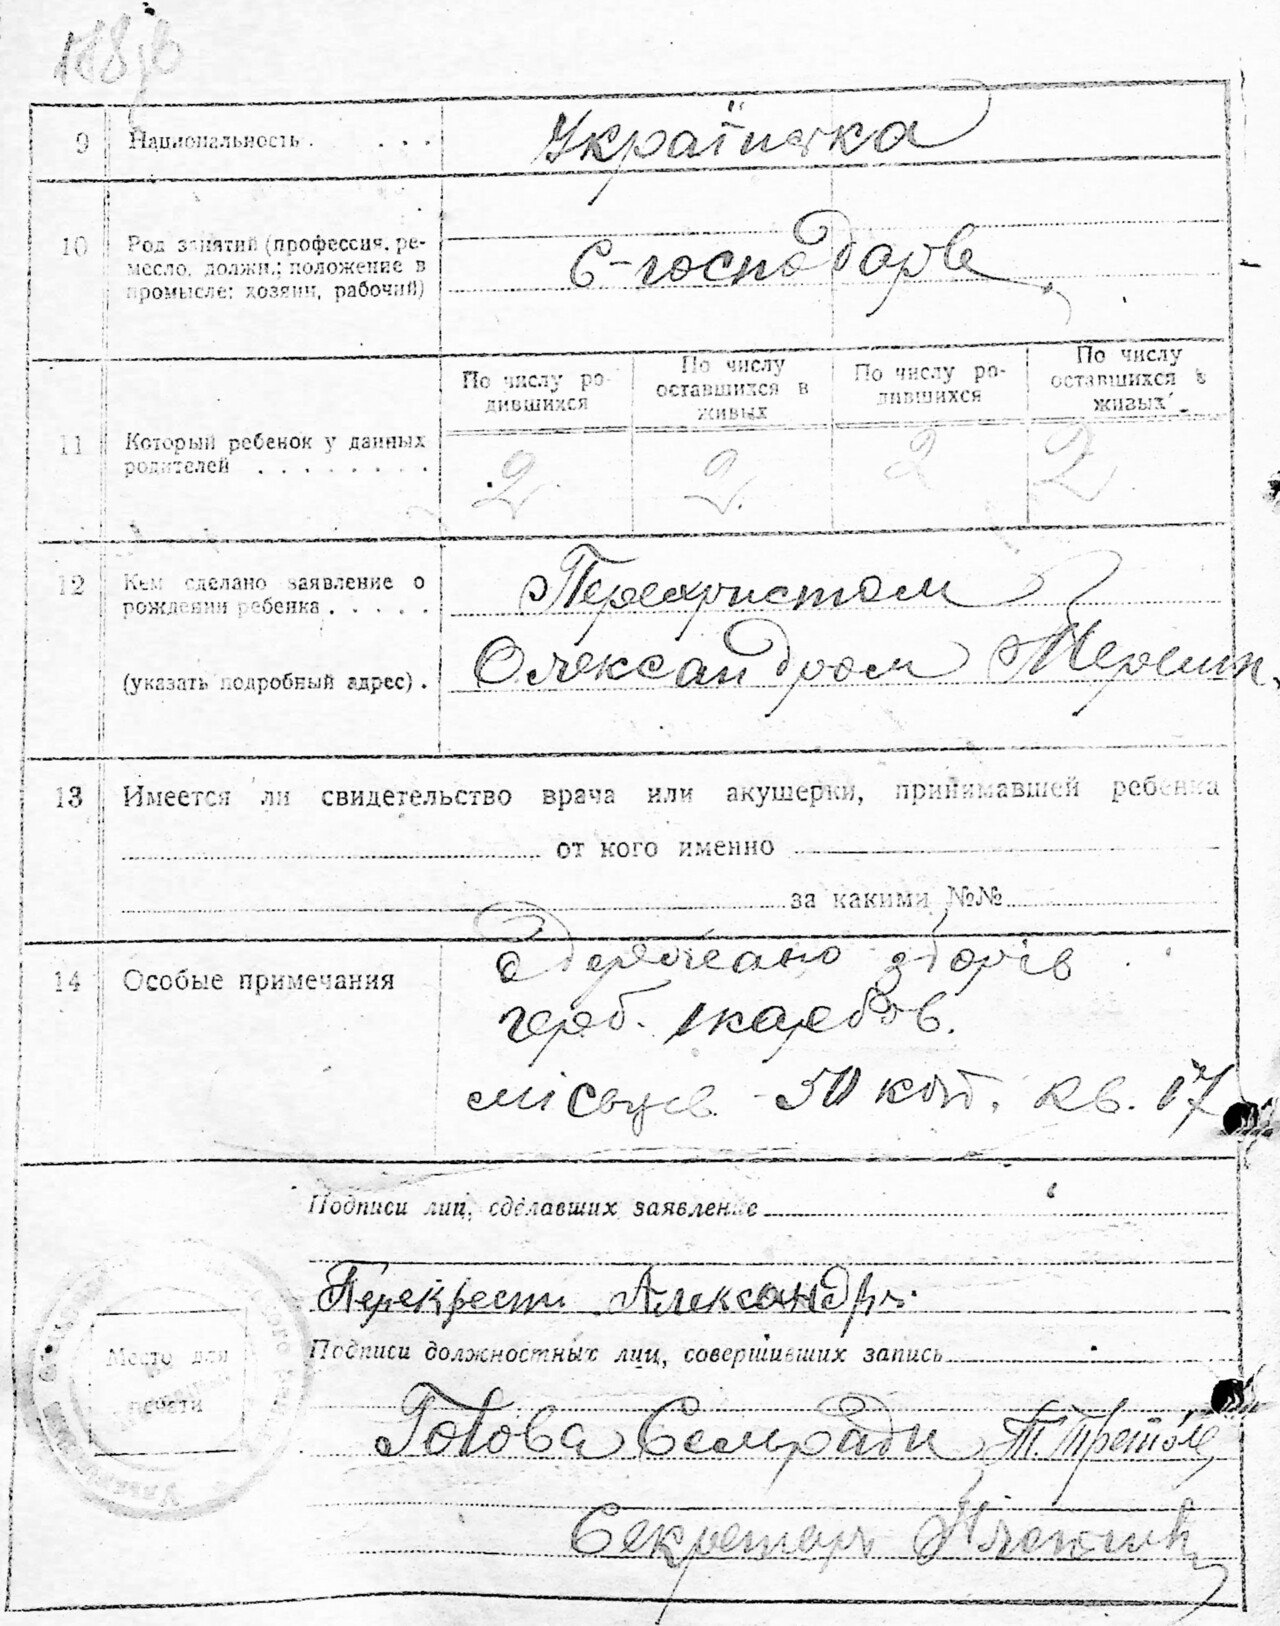 9 Национальность . . . . Українка
10 Род занятий (профессия, ре-
месло, должн.; положение в
промысле: хозяин, рабочий)
С-господарь
По числу ро-
дившихся
По числу
оставшихся в
живых
По числу ро-
дившихся
По числу
оставшихся в
живых
11 Который ребенок у данных
родителей . . . . . . . .
2 2 2 2
12 Кем сделано заявление о
рождении ребенка . . . . .
(указать подробный адрес) .
Перехристом
Олександром
13 Имеется ли свидетельство врача или акушерки, принимавшей ребенка
от кого именно
за какими №№
14 Особые примечания
Одержано зборів
герб. 1 карбов.
місцев. 50 коп. кв. 17
Подписи лиц, сделавших заявление
Перекрест Александр
Подписи должностных лиц, совершивших запись
Голова Сельради
Секретарь
Место для
печати